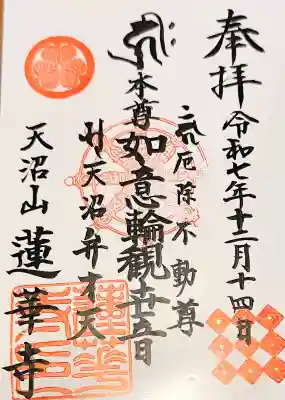 奉拝
令和七年十二月十四日
厄除不動尊
本尊
如意輪観世音
天沼弁才天
天沼山
蓮華寺